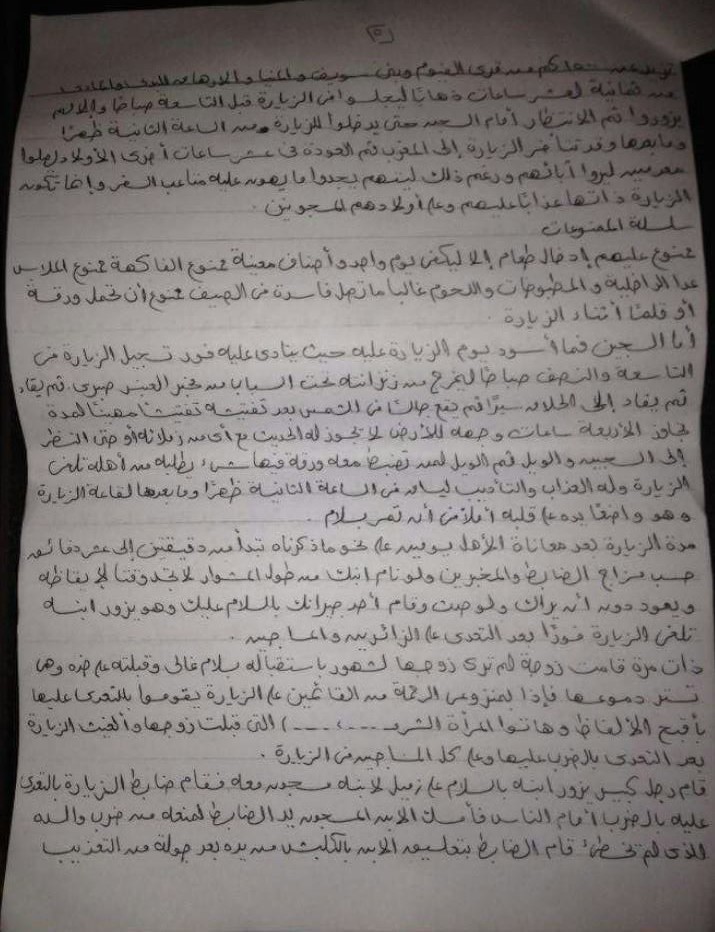 ٥
من قرى الفيوم وبنى سويف والمنيا
من ثمانية لعشر ساعات ذهابًا ليجلسوا فى الزيارة قبل التاسعة صباحًا وإلا لم
يزوروا ثم الانتظار أمام السجن حتى يدخلوا للزيارة من الساعة الثانية ظهرًا
وما بعدها وقد تتأخر الزيارة إلى المغرب ثم العودة فى عشر ساعات أخرى
ليروا آبائهم ورغم ذلك ليتهم يجدوا ما يهون عليه متاعب السفر وإنما تكون
الزيارة ذاتها عذابًا عليهم وعلى أولادهم المسجونين .
سلسلة الممنوعات
ممنوع عليهم إدخال طعام إلا ليكفى يوم واحد وأصناف معينة ممنوع الفاكهة ممنوع الملابس
عدا الداخلية والمطبوخات واللحوم غالبا ما تصل فاسدة فى الصيف ممنوع أن تحمل ورقة
أو قلمًا أثناء الزيارة .
أما السجين فما أسود يوم الزيارة عليه حيث ينادى عليه فور تسجيل الزيارة فى
التاسعة والنصف صباحًا ليخرج من زنزانته تحت السباب من مخبر العنبر صبرى ثم يقاد
ثم يقاد إلى سيرًا ثم يقع جالسًا فى الشمس بعد تفتيشه تفتيشًا مهينًا لمدة
تجاوز الأربعة ساعات وجهه للأرض لا تجوز له الحديث مع أى من زملائه أو حتى النظر
إلى السجين والويل ثم الويل لمن تضبط معه ورقة فيها شىء يطلبه من أهله تلغى
الزيارة وله العذاب والتأديب ليساق فى الساعة الثانية ظهرًا وما بعدها لقاعة الزيارة
وهو واضعًا يده على قلبه أملاً فى أن تمر بسلام .
مدة الزيارة بعد معاناة الأهل يومين على نحو ما ذكرناه تبدأ من دقيقتين إلى عشر دقائق
حسب مزاج الضابط والمخبرين ولو نام ابنك من طول المشوار لا تجد وقتًا لإيقاظه
ويعود دون أن يراك ولو حدث وقام أحد جيرانك بالسلام عليك وهو يزور ابنه
تلغى الزيارة فورًا بعد التعدى على الزائرين والمساجين .
ذات مرة قامت زوجة لم ترى زوجها لشهور باستقباله بسلام غالى وقبلته على خده وهى
تستر دموعها فإذا بمنزوعى الرحمة من القائمين على الزيارة يقوموا بالتعدى عليها
بأقبح الألفاظ وهاتوا المرأة الشرمـ ......) التى قبلت زوجها وألغيت الزيارة
بعد التعدى بالضرب عليها وعلى كل المساجين فى الزيارة .
قام رجل كبير يزور ابنه بالسلام على زميل لابنه مسجون معه فقام ضابط الزيارة بالتعدى
عليه بالضرب أمام الناس فأمسك الابن المسجون يد الضابط لمنعه من ضرب والده
الذى لم تخطئ قام الضابط بتعليق الابن بالكلبش من يده بعد جولة من التعذيب